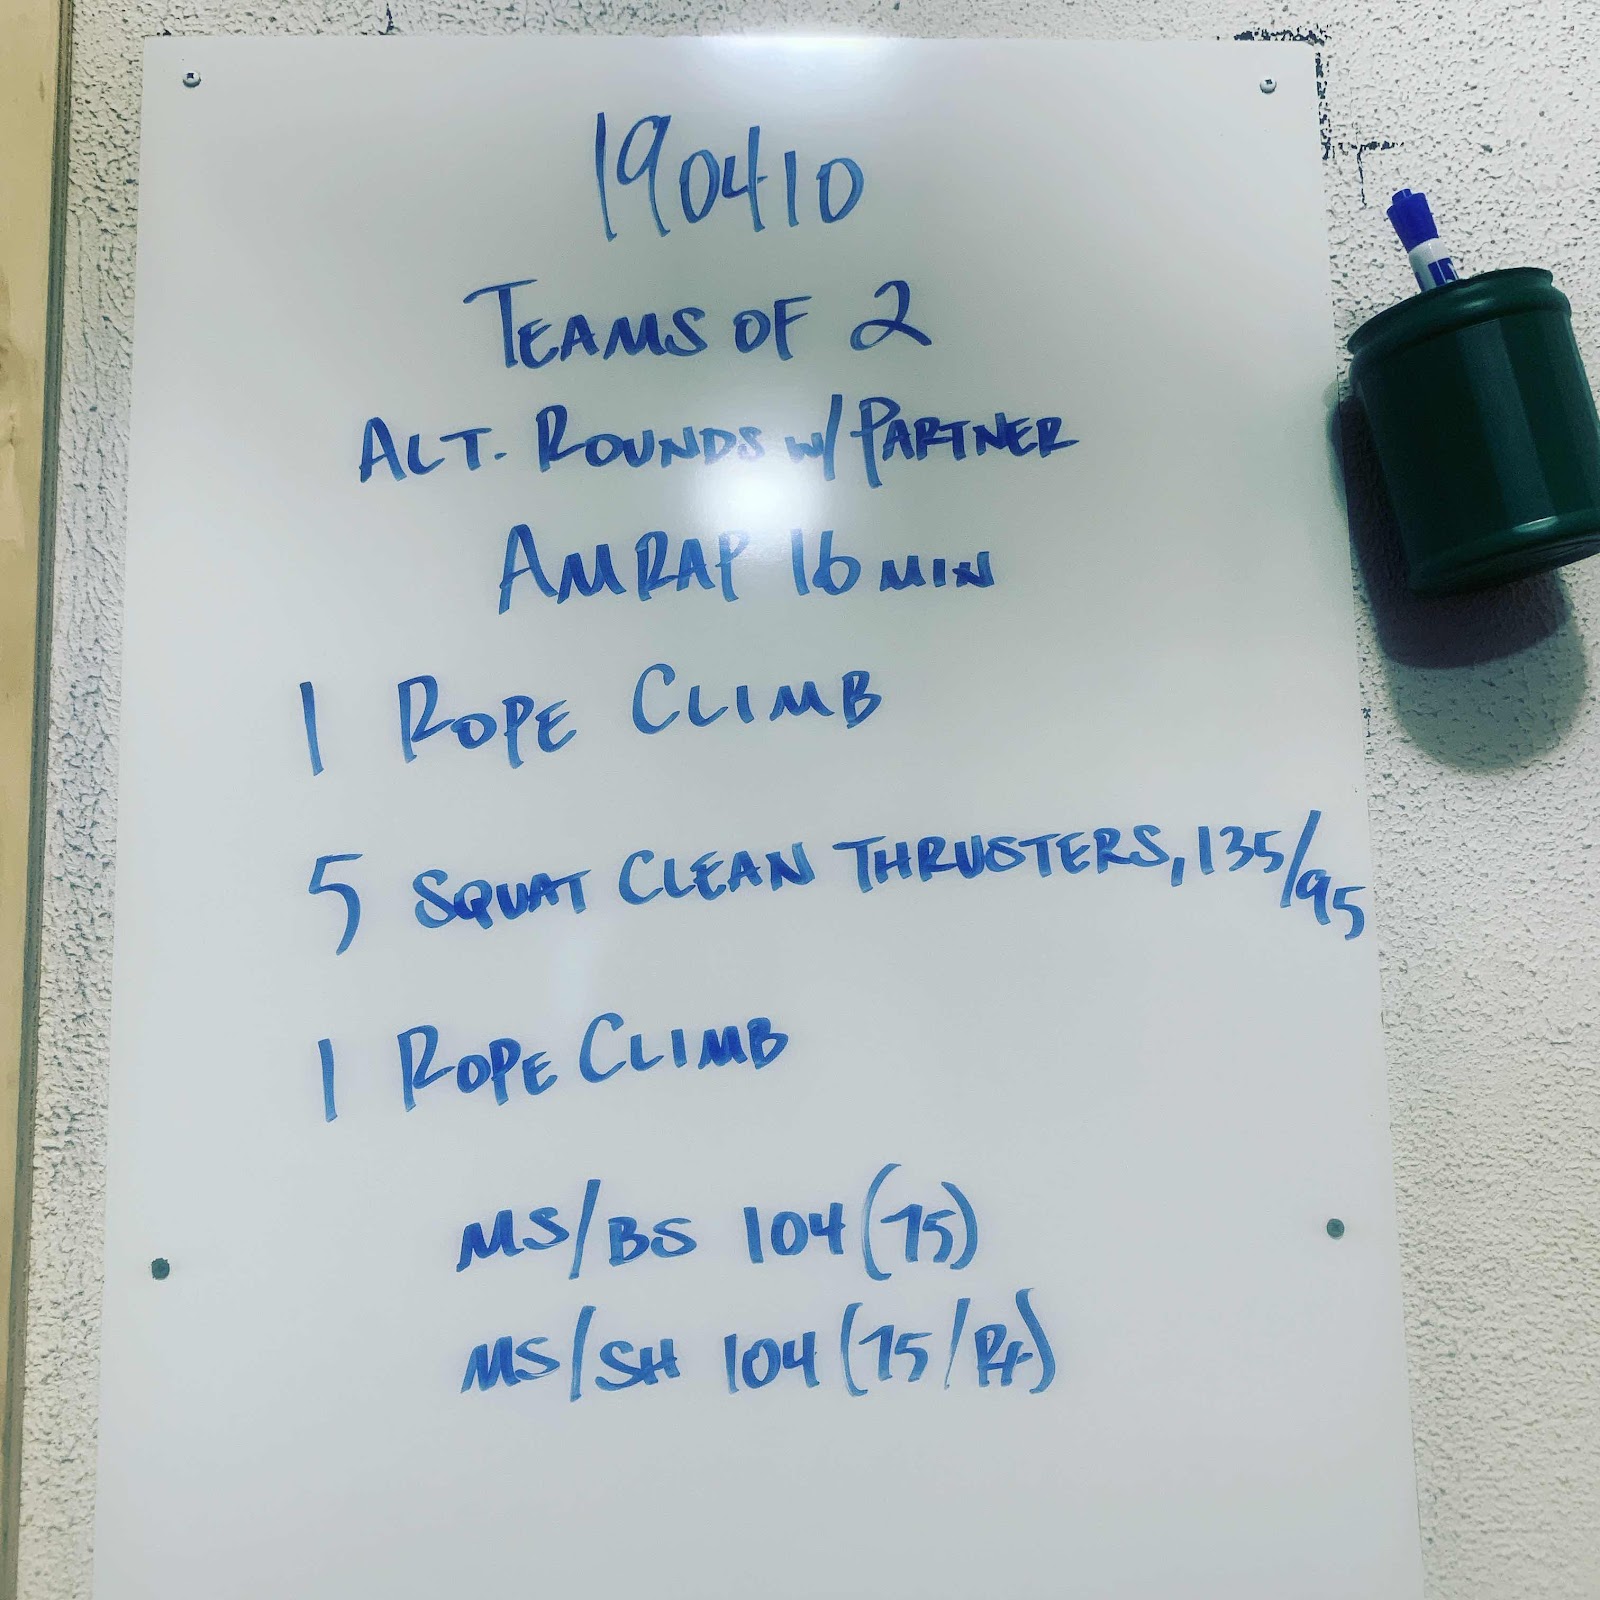 190410
TEAMS OF 2
ALT. ROUNDS W/ PARTNER
AMRAP 16 MIN
1 ROPE CLIMB
5 SQUAT CLEAN THRUSTERS, 135/95
1 ROPE CLIMB
MS/BS 104 (75)
MS/SH 104 (75/Rx)